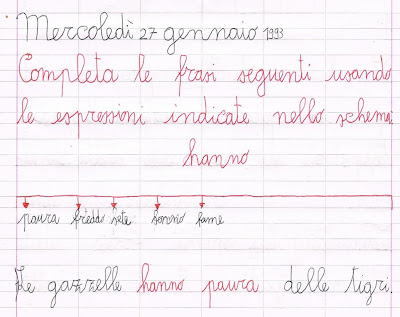 Mercoledì 27 gennaio 1993
Completa le frasi seguenti usando
le espressioni indicate nello schema:
hanno
paura freddo sete sonno fame
Le gazzelle hanno paura delle tigri.